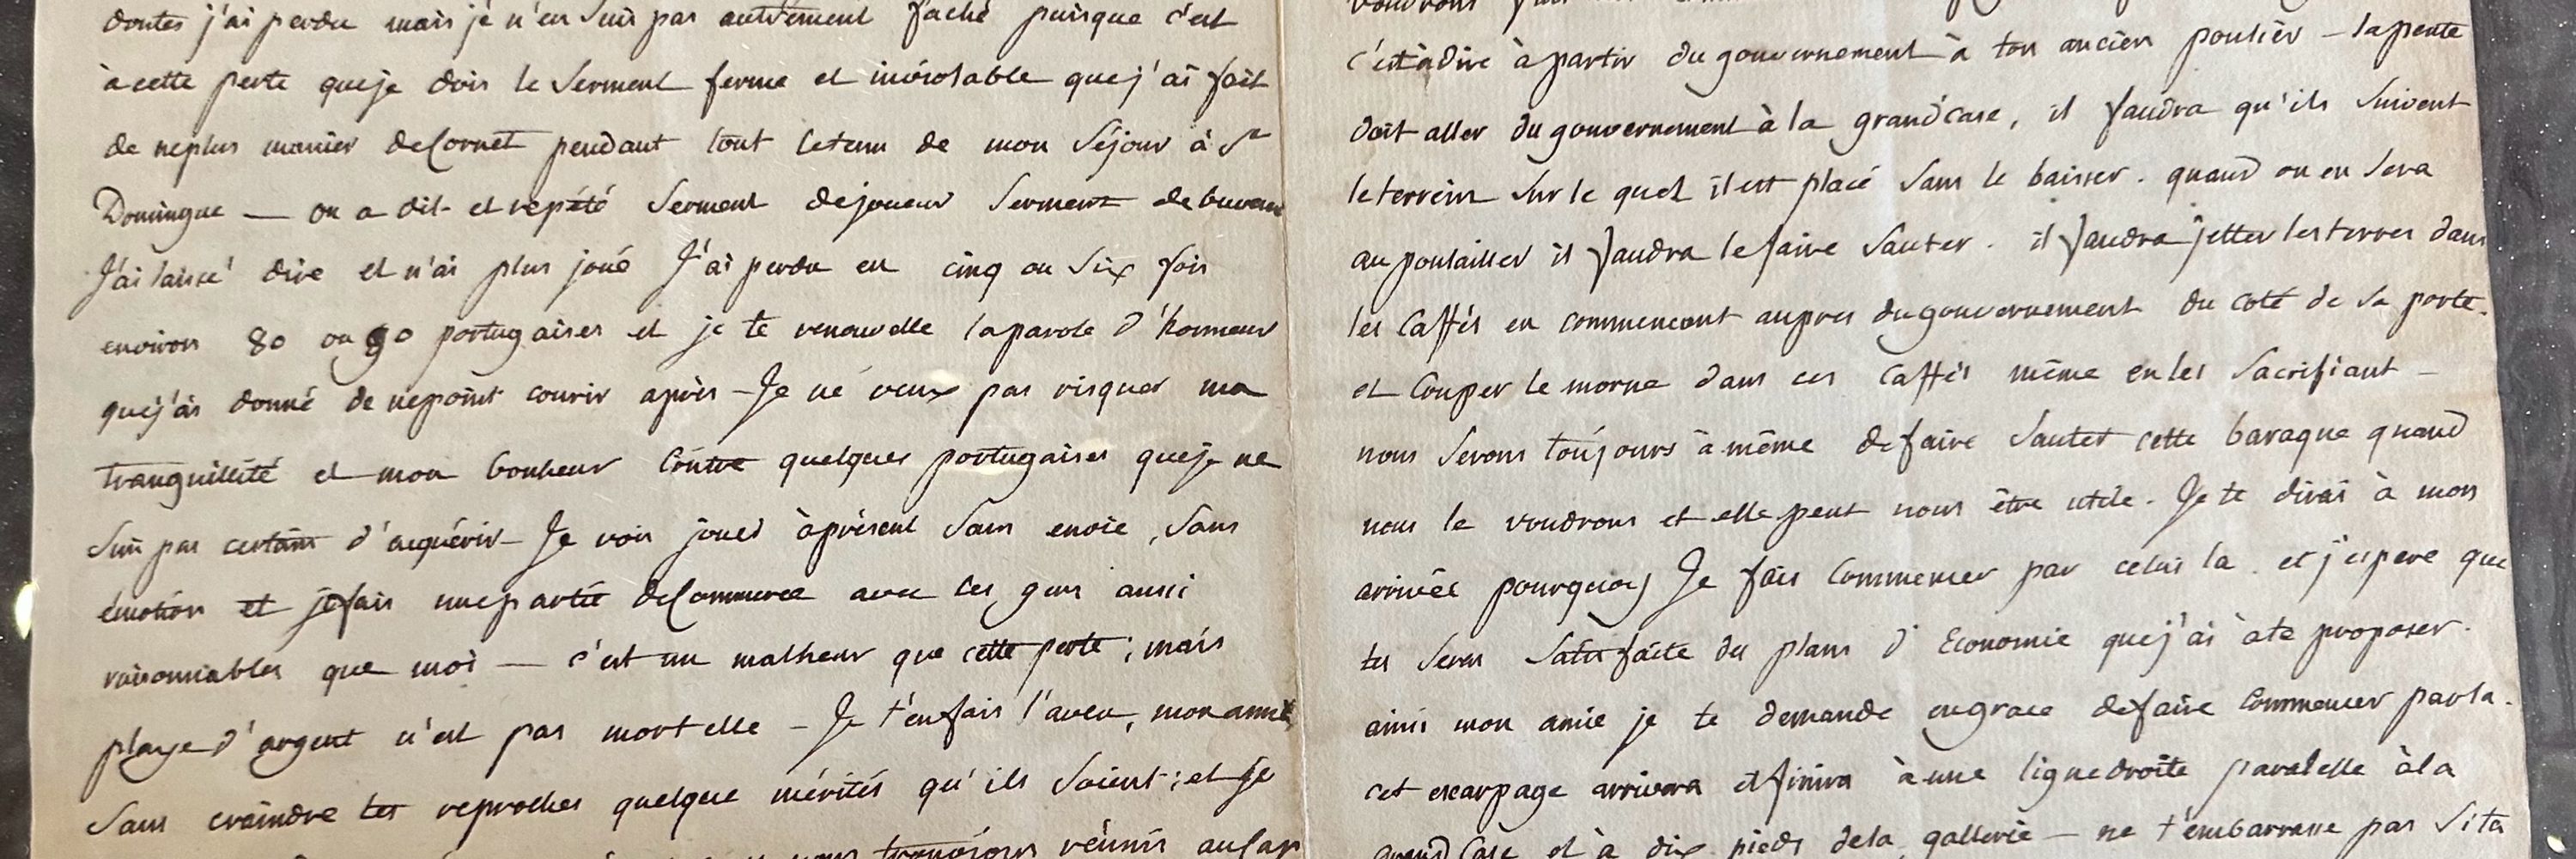 doutes j'ai perdu mais je n'en suis pas autrement faché puisque c'est
à cette perte que je dois le serment ferme et inviolable que j'ai fait
de ne plus manier de Cornet pendant tout le tems de mon séjour à St
Domingue — on a dit et repété serment de joueur serment de buveur
J'ai laissé dire et n'ai plus joué J'ai perdu en cinq ou six fois
environ 80 ou 90 portugaises et je te renouvelle la parole d'honneur
que j'ai donné de ne point courir après — Je ne veux pas risquer ma
tranquillité et mon bonheur contre quelques portugaises que je ne
suis pas certain d'acquérir — Je vois jouer à présent sans envie, sans
émotion et je fais une partie de Commerce avec des gens aussi
raisonnables que moi — c'est un malheur que cette perte ; mais
playe d'argent n'est pas mortelle — Je t'en fais l'aveu, mon amie
sans craindre tes reproches quelque mérités qu'ils soient ; et je
nous trouvions réunis au Cap
voudrons
c'est à dire à partir du gouvernement à ton ancien poulier — la pente
doit aller du gouvernement à la grand'case, il faudra qu'ils suivent
le terrein sur le quel il est placé sans le baisser. quand on en sera
au poulailler il faudra le faire sauter. il faudra jetter les terres dans
les Caffés en commencant aupres du gouvernement du coté de sa porte.
et Couper le morne dans ces Caffés même en les sacrifiant —
nous serons toujours à même de faire sauter cette baraque quand
nous le voudrons et elle peut nous être utile. Je te dirai à mon
arrivée pourquoy Je fais Commencer par celui la. et j'espere que
tu seras satisfaite des plans d'Economie que j'ai à te proposer.
ainsi mon amie je te demande en grace de faire Commencer par la.
cet escarpage arrivera et finira à une ligne droite paralelle à la
grand Case et à dix pieds de la gallerie — ne t'embarrasse pas si ta